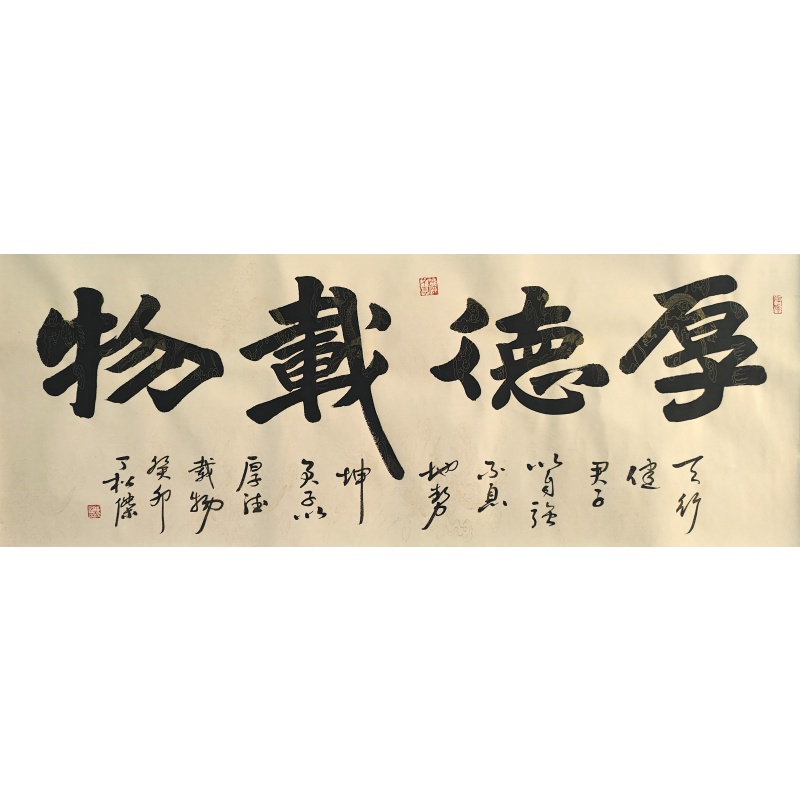 厚德載物
天行
健
君子
以自強
不息
地勢
坤
君子以
厚德
載物
癸卯
丁松傑